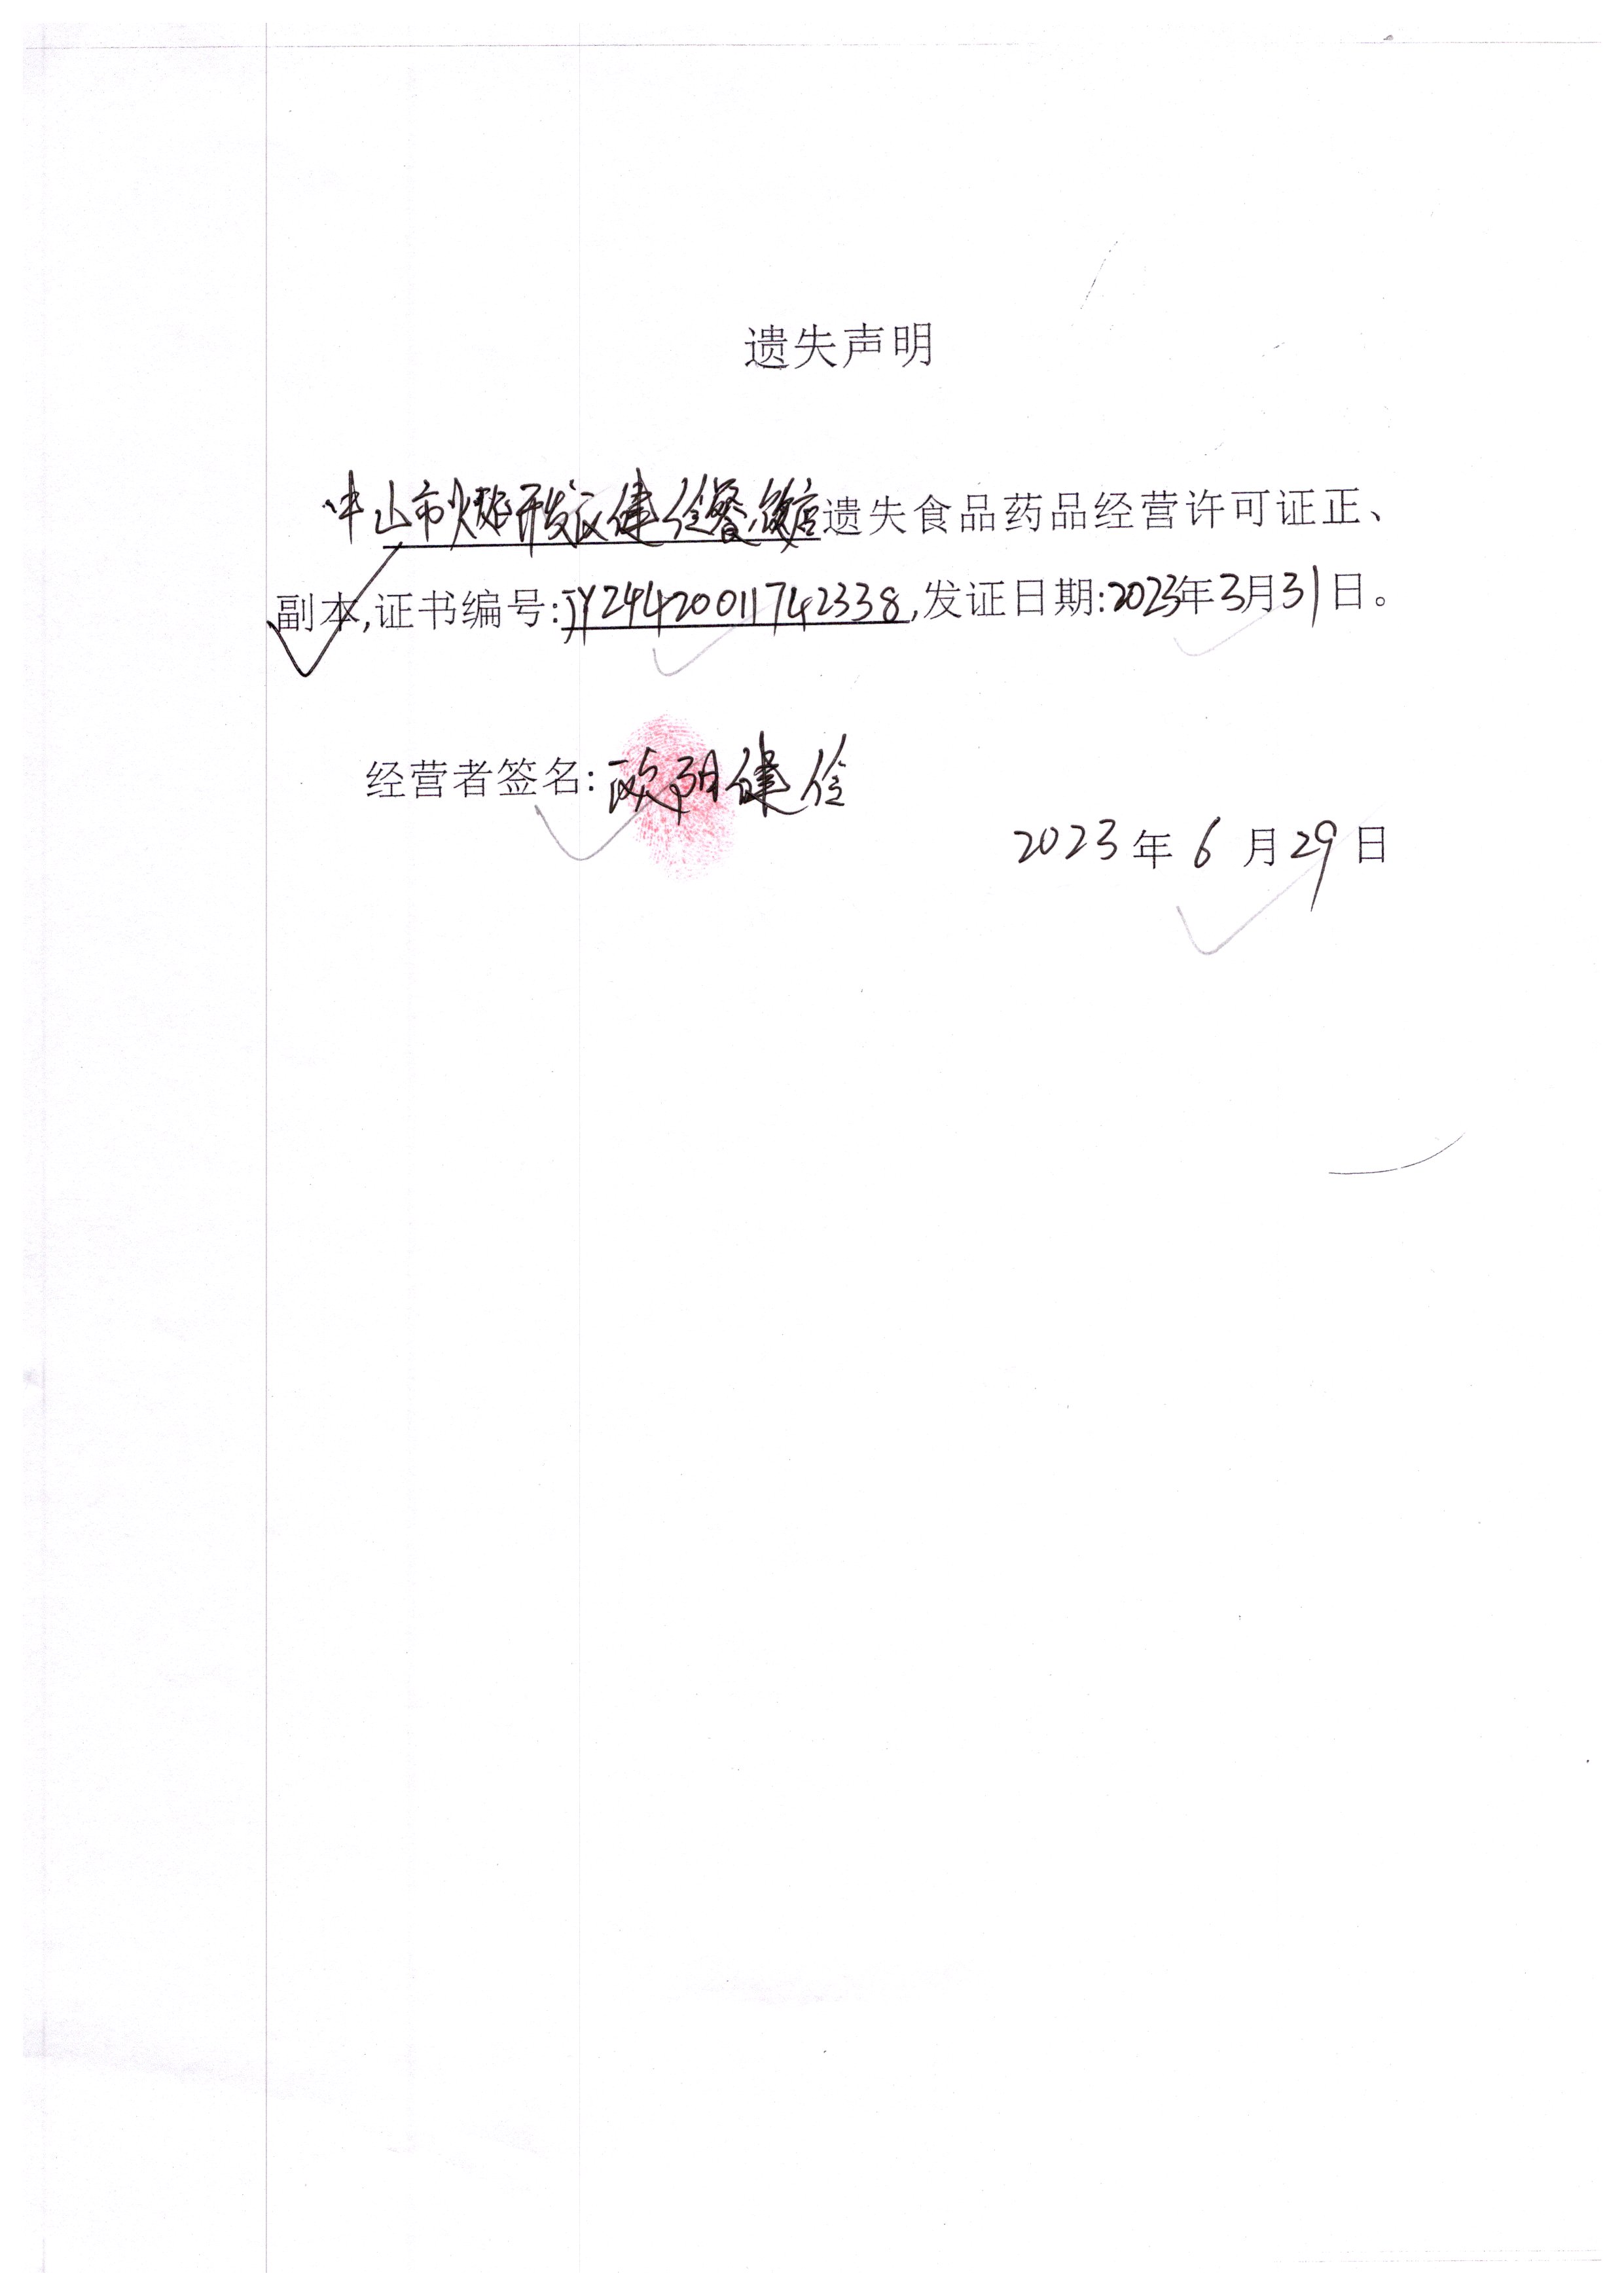 遗失声明
中山市火炬开发区健俭餐饮店遗失食品药品经营许可证正、
副本,证书编号:JY24420011742338,发证日期:2023年3月31日。
经营者签名:欧阳健俭
2023年6月29日